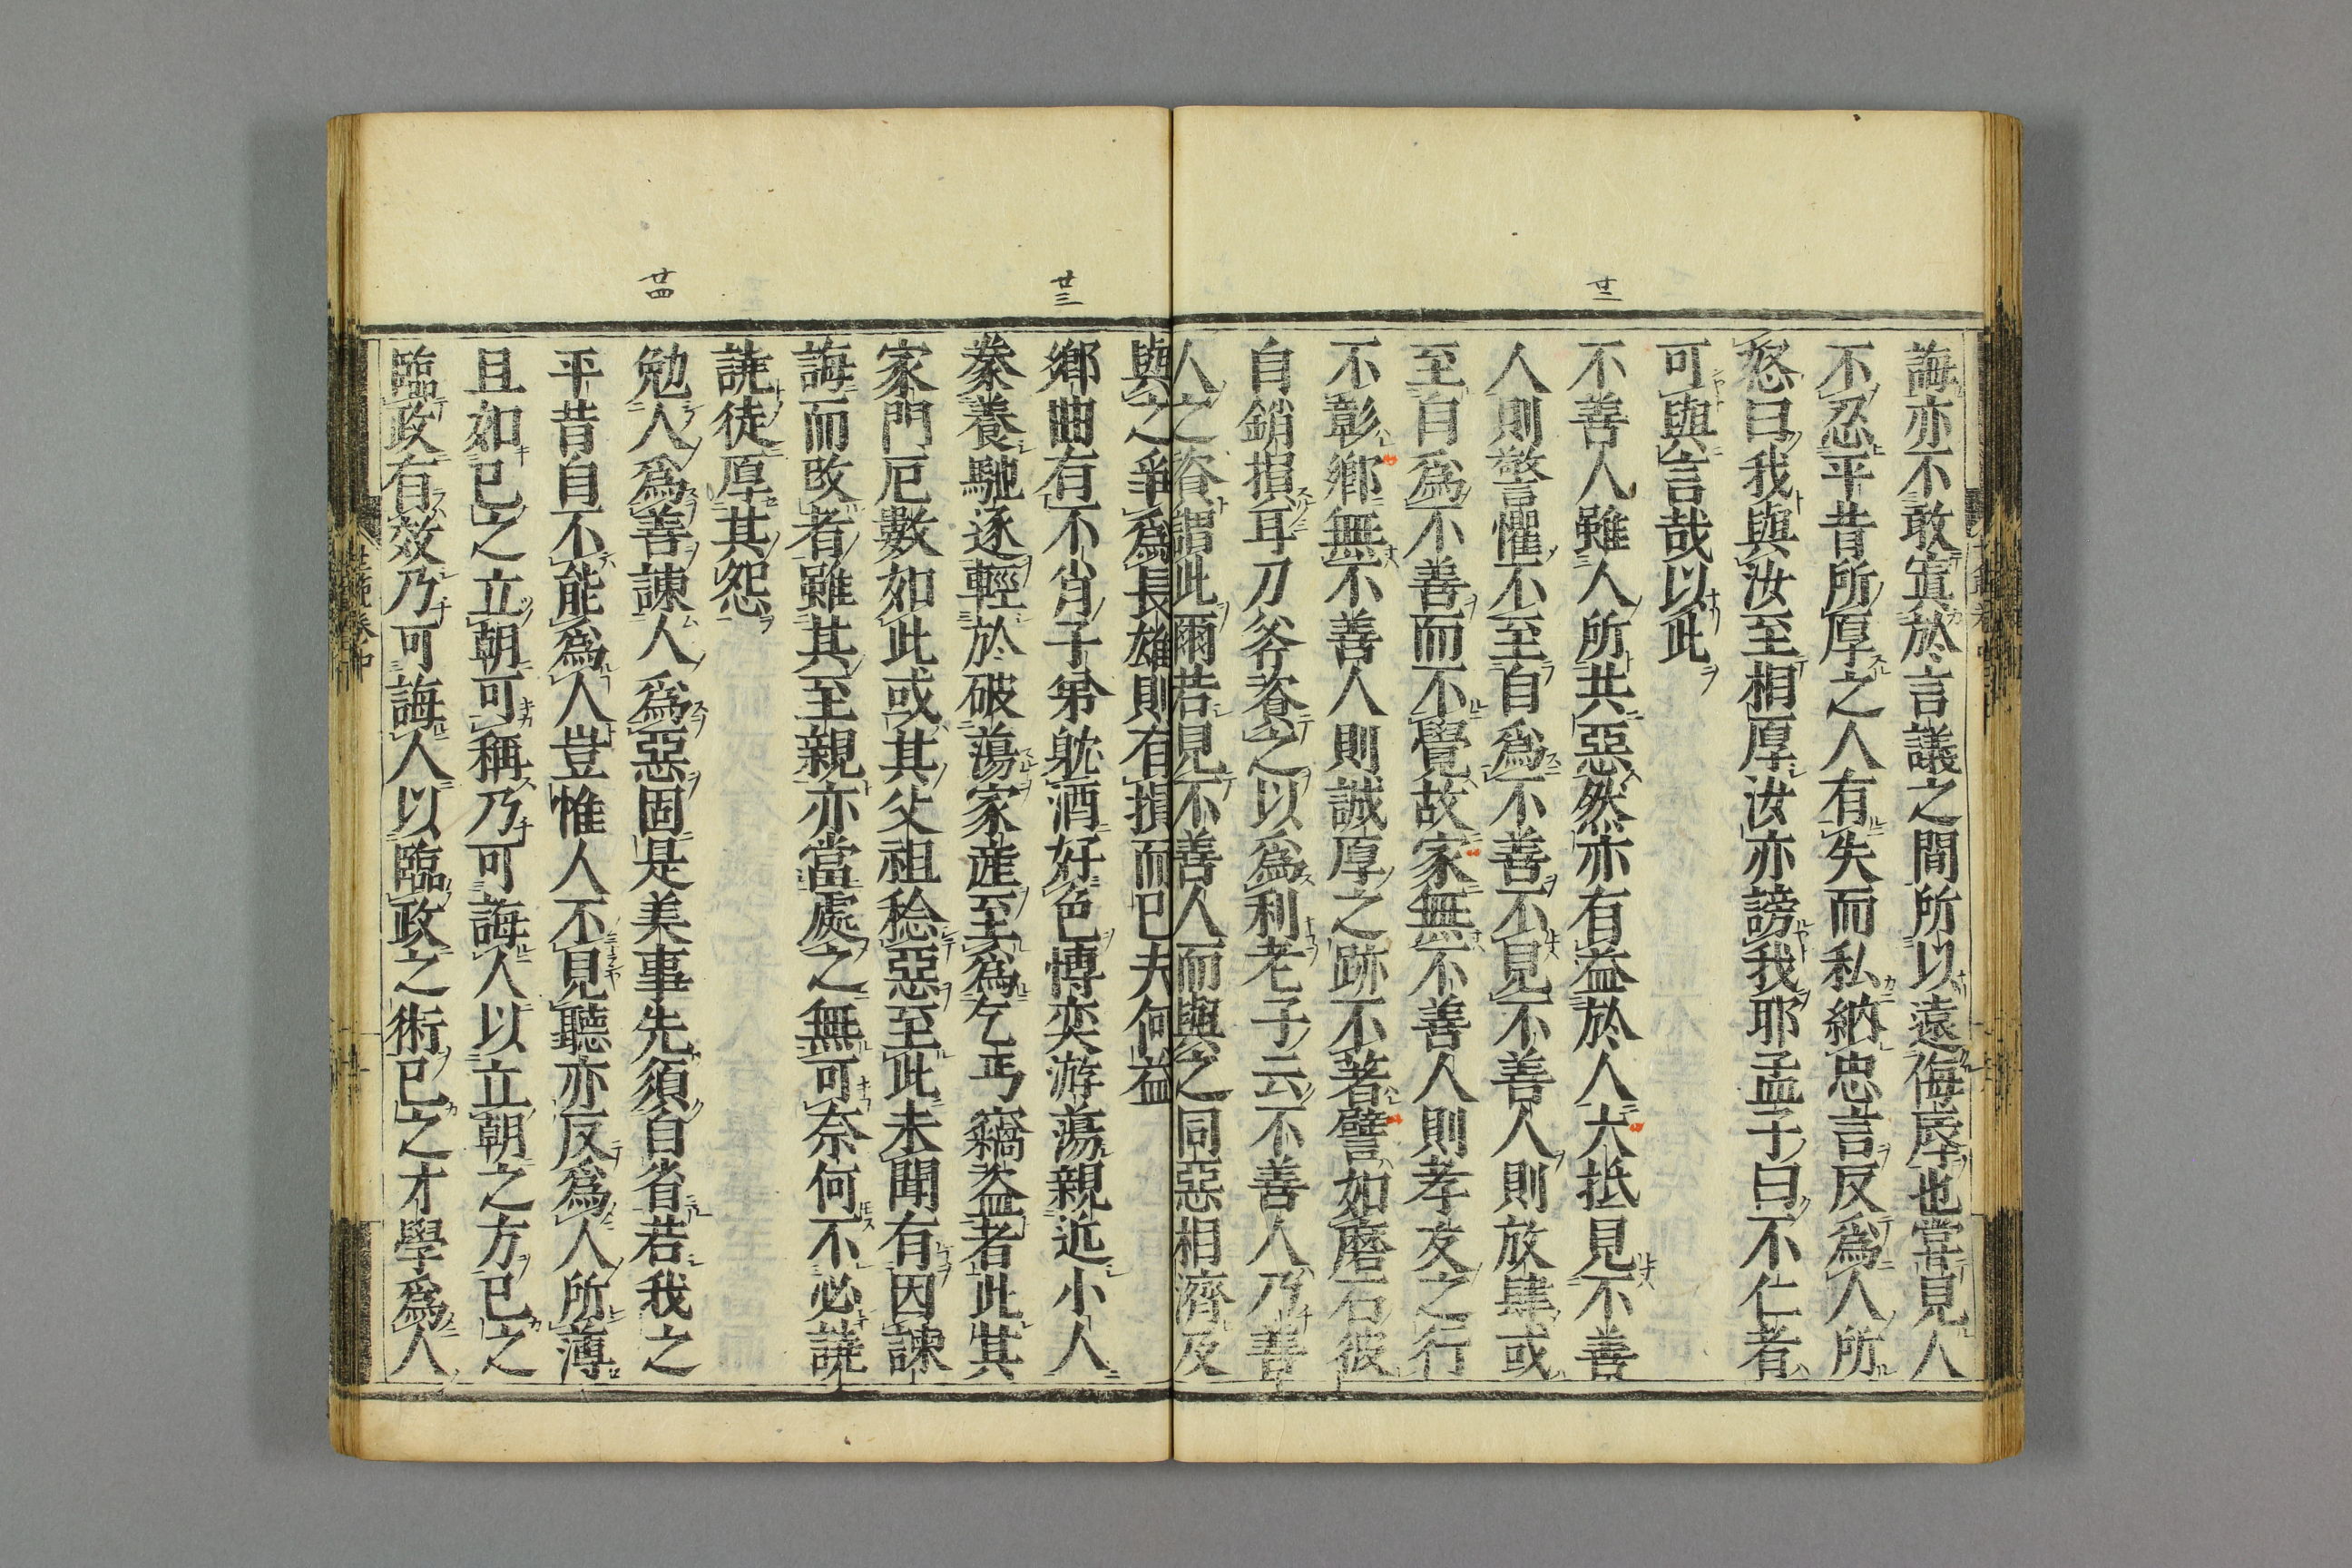 誨亦不敢寘於言議之間所以遠侮辱也嘗見人
不忍平昔所厚之人有失而私納忠言反爲人所
怒曰我與汝至相厚汝亦謗我耶孟子曰不仁者
可與言哉以此
廿二
不善人雖人所共惡然亦有益於人大抵見不善
人則警懼不至自爲不善不見不善人則放肆或
至自爲不善而不覺故家無不善人則孝友之行
不彰鄉無不善人則誠厚之跡不著譬如磨石彼
自銷損耳刀斧資之以爲利老子云不善人乃善
人之資謂此爾若見不善人而與之同惡相濟及
與之爭爲長雄則有損而已夫何益
廿三
鄉曲有不肖子弟躭酒好色博奕游蕩親近小人
豢養馳逐輕於破蕩家産至爲乞丐竊盗者此其
家門厄數如此或其父祖稔惡至此未聞有因諫
誨而改者雖其至親亦當處之無可奈何不必譊
譊徒厚其怨
廿四
勉人爲善諫人爲惡固是美事先須自省若我之
平昔自不能爲人豈惟人不見聽亦反爲人所薄
且如已之立朝可稱乃可誨人以立朝之方已之
臨政有效乃可誨人以臨政之術已之才學爲人